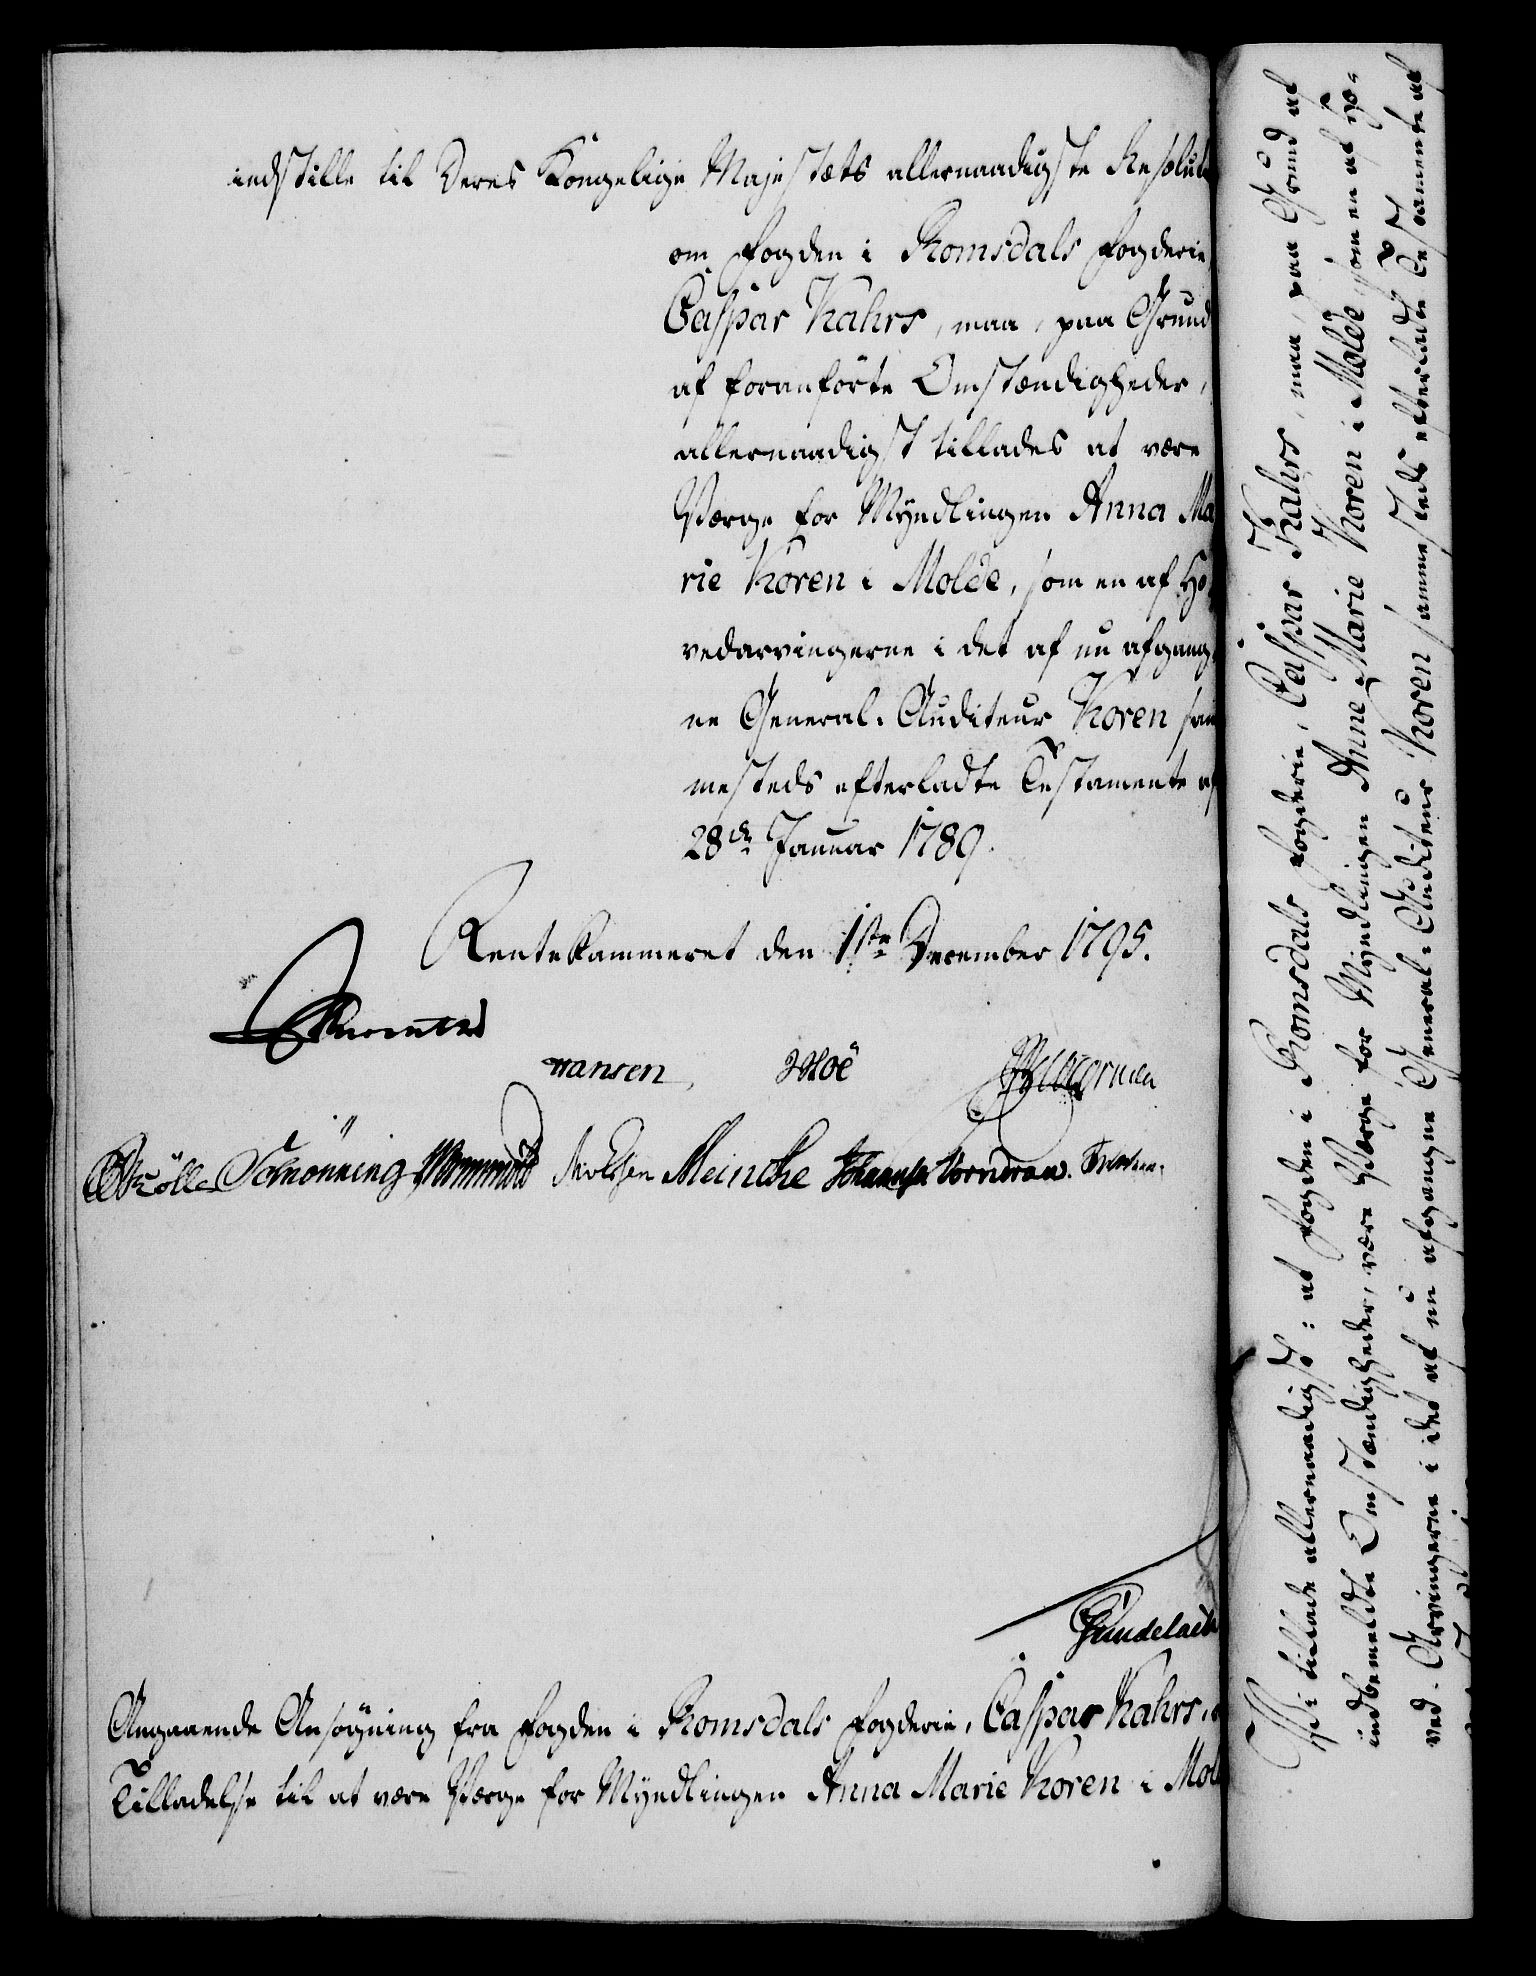 indstille til Deres Kongelige Majestæts allernaadigste Resolut
om Fogden i Romsdals Fogderie,
Caspar Kahrs, maa, paa Grund
af foranførte Omstændigheder,
allernaadigst tillades at være
Værge for Myndlingen Anna Ma
rie Koren i Molde, som en af Ho
vedarvingerne i det af nu afgang
ne General-Auditeur Koren sam
mesteds efterladte Testamente af
28de Januar 1789.
Rentekammeret den 1ste December 1795.
Hansen, Moë
Schönning Wormskiold Meincke Johansen Vorndran
Gundelach
Angaaende Ansøgning fra Fogden i Romsdals Fogderie, Caspar Kahrs,
Tilladelse til at være Værge for Myndlingen Anna Marie Koren i Mol
Vi tillade allernaadigst: at Fogden i Romsdals Fogderie, Caspar Kahrs, maa, paa Grund af
indbemeldte Omstændigheder, være Værge for Myndlingen Anne Marie Koren i Molde, som en af Ho-
ved-Arvingerne i det af nu afgangne General-Auditeur Koren sammesteds efterladte Testamente af